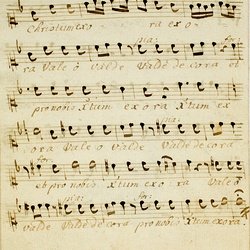 Christum exo ra exo
pia: for
ra Vale o valde Valde decora et
pro nobis Xtum exora Xtum ex
pia:
ora Vale o Valde Valde decora
for:
et pro nobis Xtum exo ra Vale o
pia: for:
valde Valde decora pro nobis Xtum exora